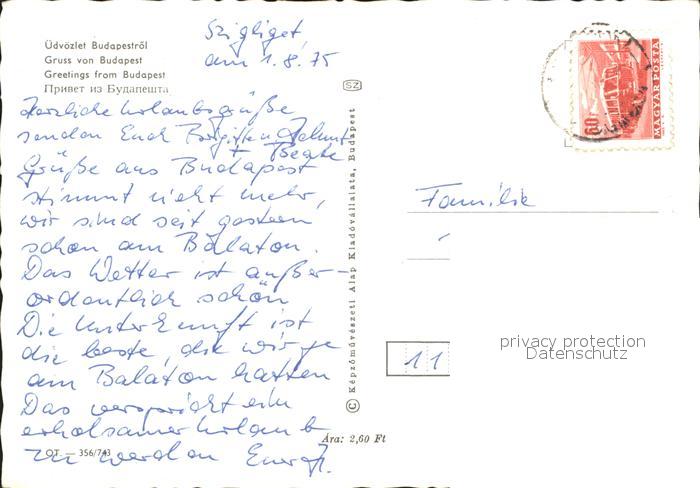 Szigliget
am 1.8.75
Üdvözlet Budapestről
Gruss von Budapest
Greetings from Budapest
Привет из Будапешта
Herzliche Urlaubsgrüße
senden Euch Helmut
+ Beate
Grüße aus Budapest
stimmt nicht mehr,
wir sind seit gestern
schon am Balaton.
Das Wetter ist außer-
ordentlich schön
Die Unterkunft ist
die beste, die wir je
am Balaton hatten
Das verspricht ein
erholsamer Urlaub
zu werden
OT. — 356/743
SZ
© Képzőművészeti Alap Kiadóvállalata, Budapest
Ára: 2,60 Ft
60
MAGYAR POSTA
Familie
11
privacy protection
Datenschutz